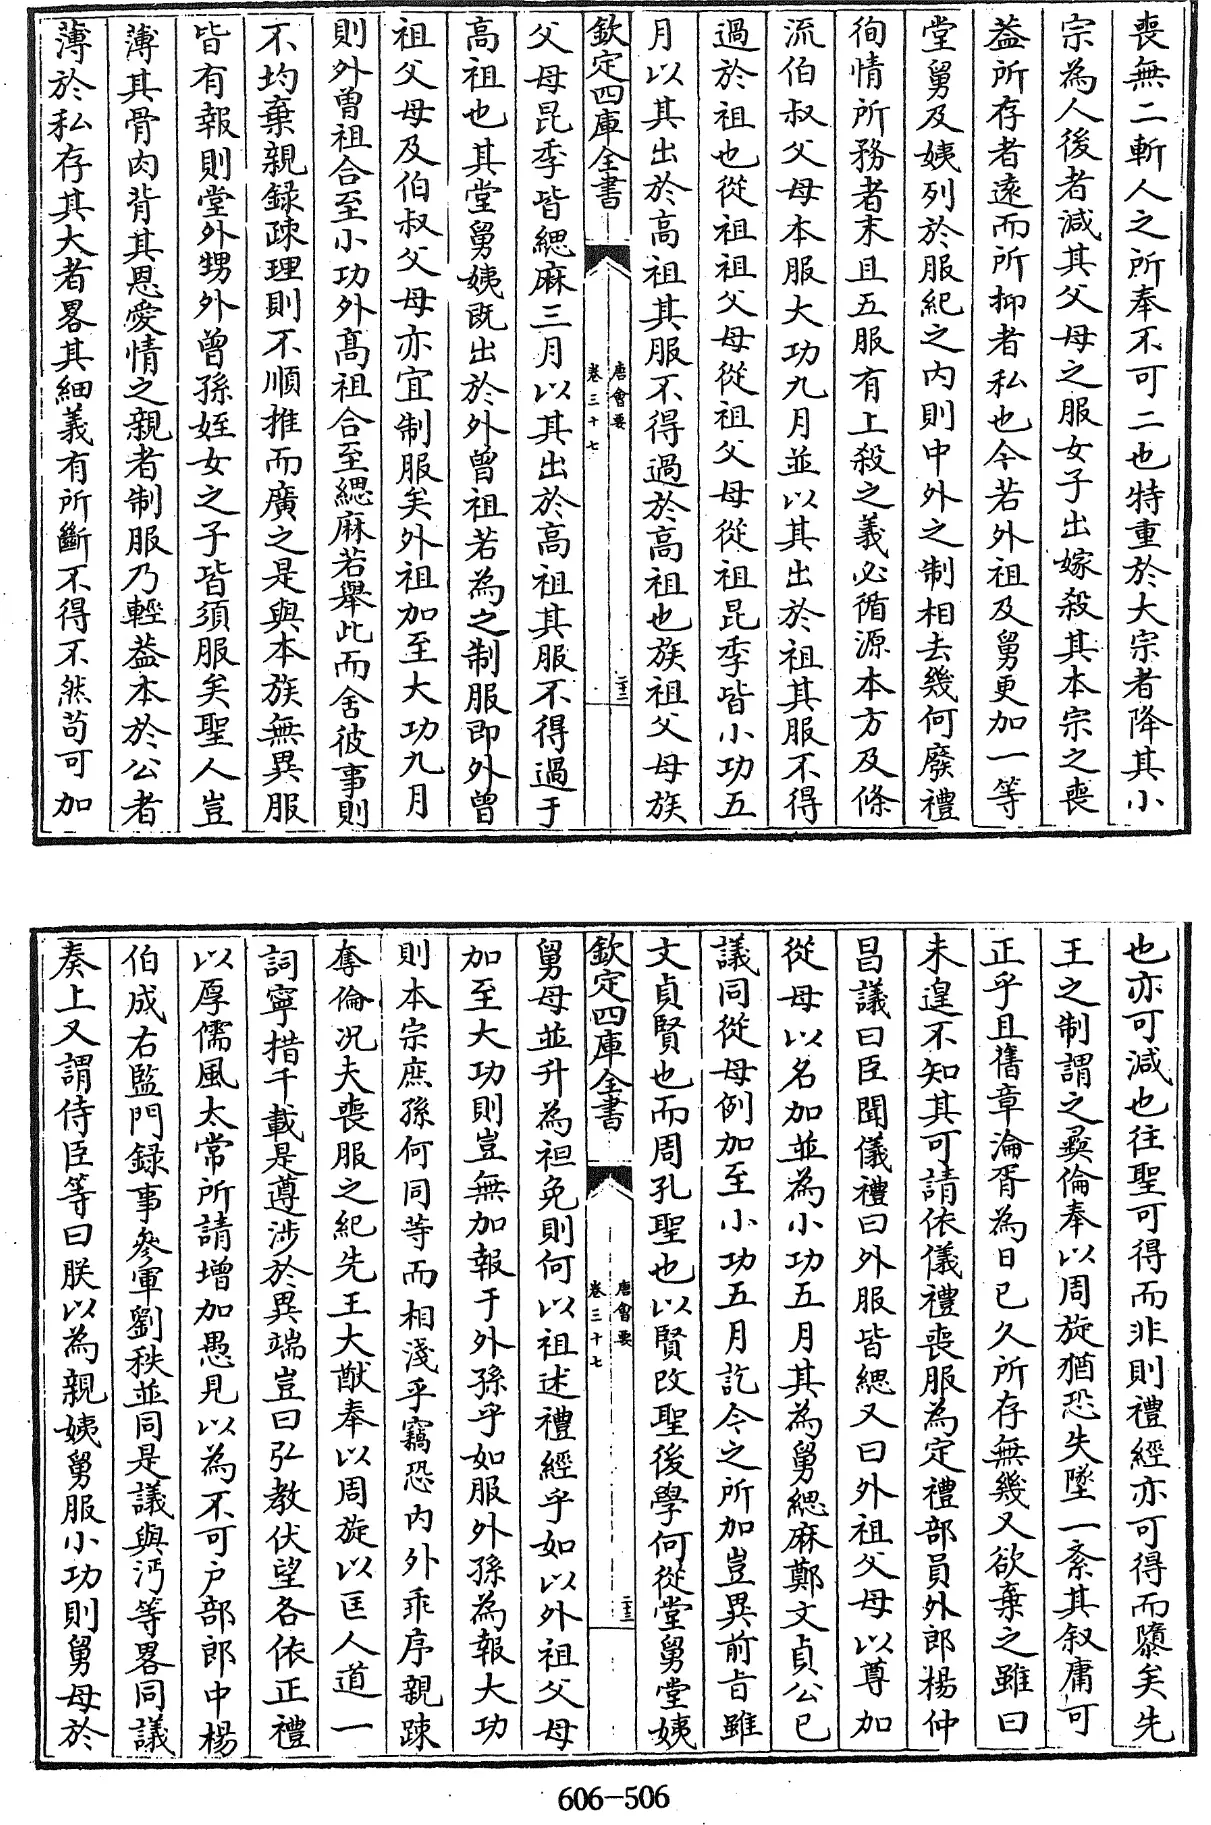 喪無二斬人之所奉不可二也特重於大宗者降其小
宗為人後者減其父母之服女子出嫁殺其本宗之喪
葢所存者遠而所抑者私也今若外祖及舅更加一等
堂舅及姨列於服紀之内則中外之制相去幾何廢禮
徇情所務者末且五服有上殺之義必循源本方及條
流伯叔父母本服大功九月並以其出於祖其服不得
過於祖也從祖祖父母從祖父母從祖昆季皆小功五
月以其出於高祖其服不得過於高祖也族祖父母族
欽定四庫全書
唐會要
卷三十七
二十二
父母昆季皆緦麻三月以其出於高祖其服不得過于
高祖也其堂舅姨既出於外曾祖若為之制服即外曾
祖父母及伯叔父母亦宜制服矣外祖加至大功九月
則外曾祖合至小功外髙祖合至緦麻若舉此而舍彼事則
不均棄親録疎理則不順推而廣之是與本族無異服
皆有報則堂外甥外曾孫姪女之子皆須服矣聖人豈
薄其骨肉背其恩愛情之親者制服乃輕葢本於公者
薄於私存其大者畧其細義有所斷不得不然苟可加
也亦可減也往聖可得而非則禮經亦可得而隳矣先
王之制謂之彛倫奉以周旋猶恐失墜一紊其叙庸可
正乎且舊章淪胥為日已久所存無幾又欲棄之雖曰
未遑不知其可請依儀禮喪服為定禮部員外郎楊仲
昌議曰臣聞儀禮曰外服皆緦又曰外祖父母以尊加
從母以名加並為小功五月其為舅緦麻鄭文貞公已
議同從母例加至小功五月訖今之所加豈異前旨雖
文貞賢也而周孔聖也以賢改聖後學何從堂舅堂姨
欽定四庫全書
唐會要
卷三十七
二十三
舅母並升為袒免則何以祖述禮經乎如以外祖父母
加至大功則豈無加報于外孫乎如服外孫為報大功
則本宗庶孫何同等而相淺乎竊恐内外乖序親踈
奪倫况夫喪服之紀先王大猷奉以周旋以匡人道一
詞寧措千載是遵涉於異端豈曰弘教伏望各依正禮
以厚儒風太常所請増加愚見以為不可户部郎中楊
伯成右監門録事參軍劉秩並同是議與沔等畧同議
奏上又謂侍臣等曰朕以為親姨舅服小功則舅母於
606-506